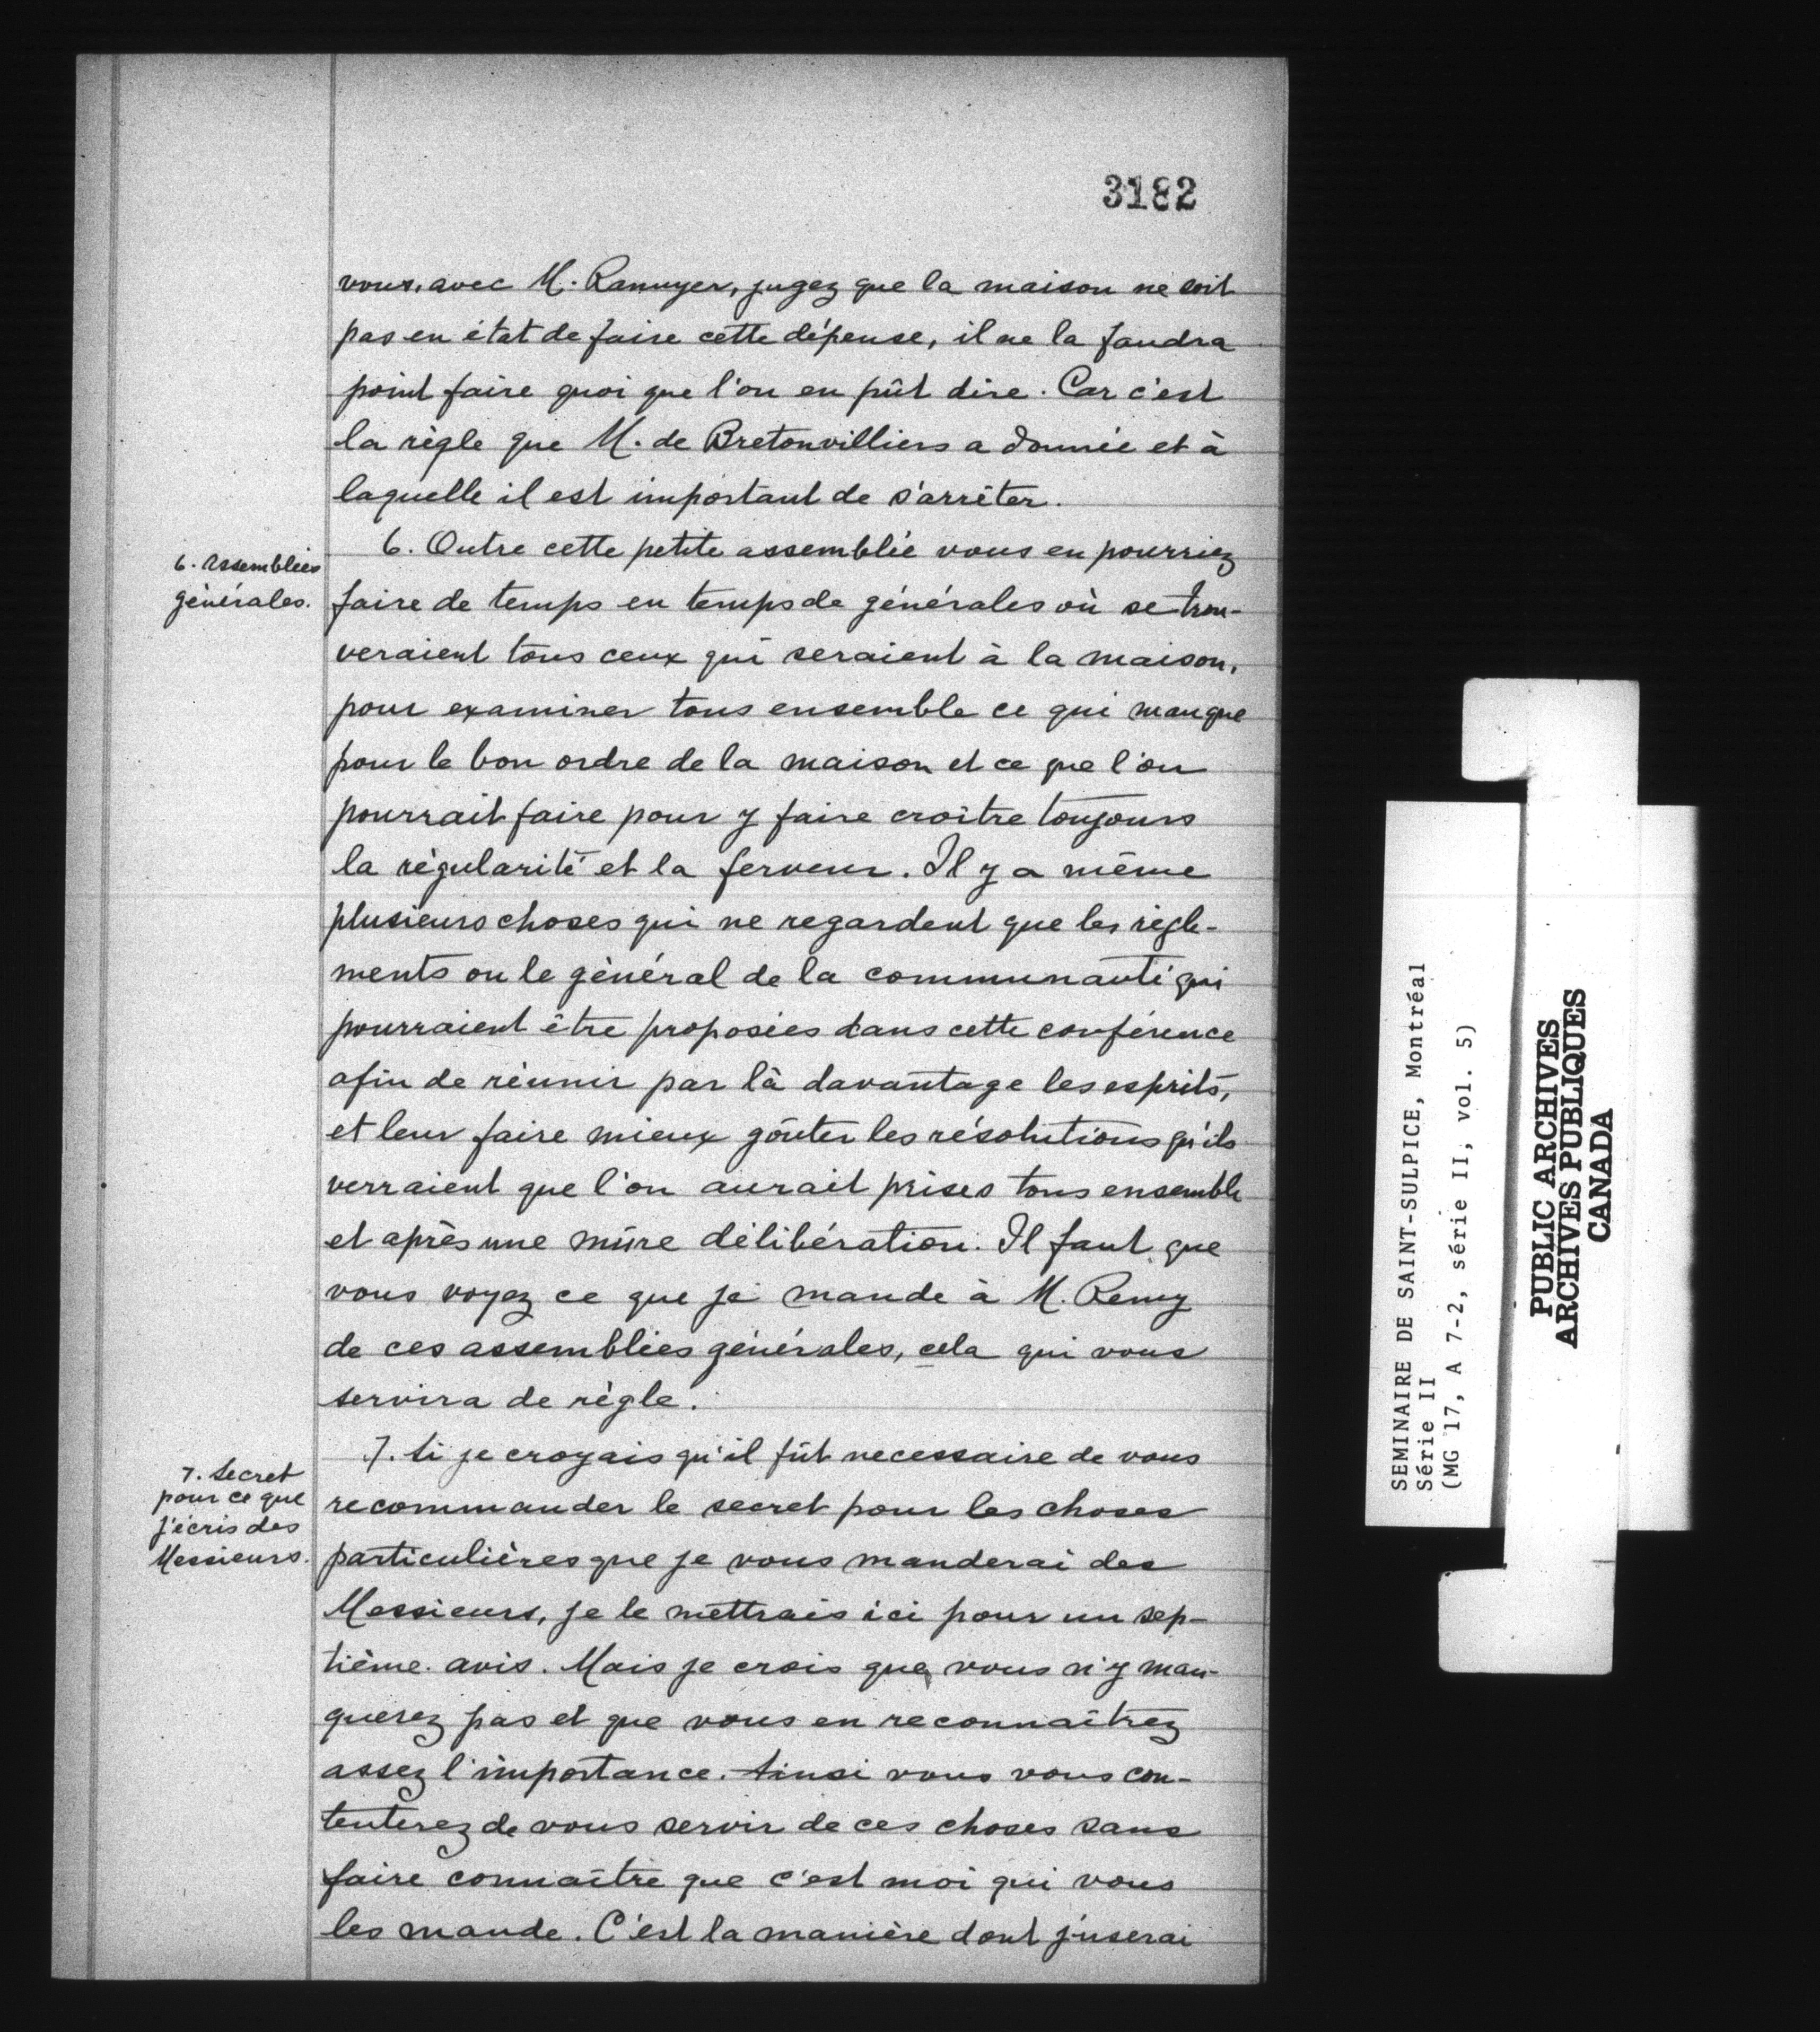 3182
vous, avec M. Ranuyer, jugez que la maison ne soit
pas en état de faire cette dépense, il ne la faudra
point faire quoi que l'on en pût dire. Car c'est
la règle que M. de Bretonvilliers a donnée et à
laquelle il est important de s'arrêter.
6. Assemblées
générales.
6. Outre cette petite assemblée vous en pourriez
faire de temps en temps de générales où se trou-
veraient tous ceux qui seraient à la maison,
pour examiner tous ensemble ce qui manque
pour le bon ordre de la maison et ce que l'on
pourrait faire pour y faire croître toujours
la régularité et la ferveur. Il y a même
plusieurs choses qui ne regardent que les règle-
ments ou le général de la communauté qui
pourraient être proposées dans cette conférence
afin de réunir par là davantage les esprits,
et leur faire mieux goûter les résolutions qu'ils
verraient que l'on aurait prises tous ensemble
et après une mûre délibération. Il faut que
vous voyez ce que je mande à M. Remy
de ces assemblées générales, cela qui vous
servira de règle.
7. Secret
pour ce que
j'écris des
Messieurs.
7. Si je croyais qu'il fût necessaire de vous
recommander le secret pour les choses
particulières que je vous manderai des
Messieurs, je le mettrais ici pour un sep-
tième avis. Mais je crois que vous n'y man-
querez pas et que vous en reconnaîtrez
assez l'importance. Ainsi vous vous con-
tenterez de vous servir de ces choses sans
faire connaître que c'est moi qui vous
les mande. C'est la manière dont j'userai
SEMINAIRE DE SAINT-SULPICE, Montréal
Série II
(MG 17, A 7-2, série II, vol. 5)
PUBLIC ARCHIVES
ARCHIVES PUBLIQUES
CANADA